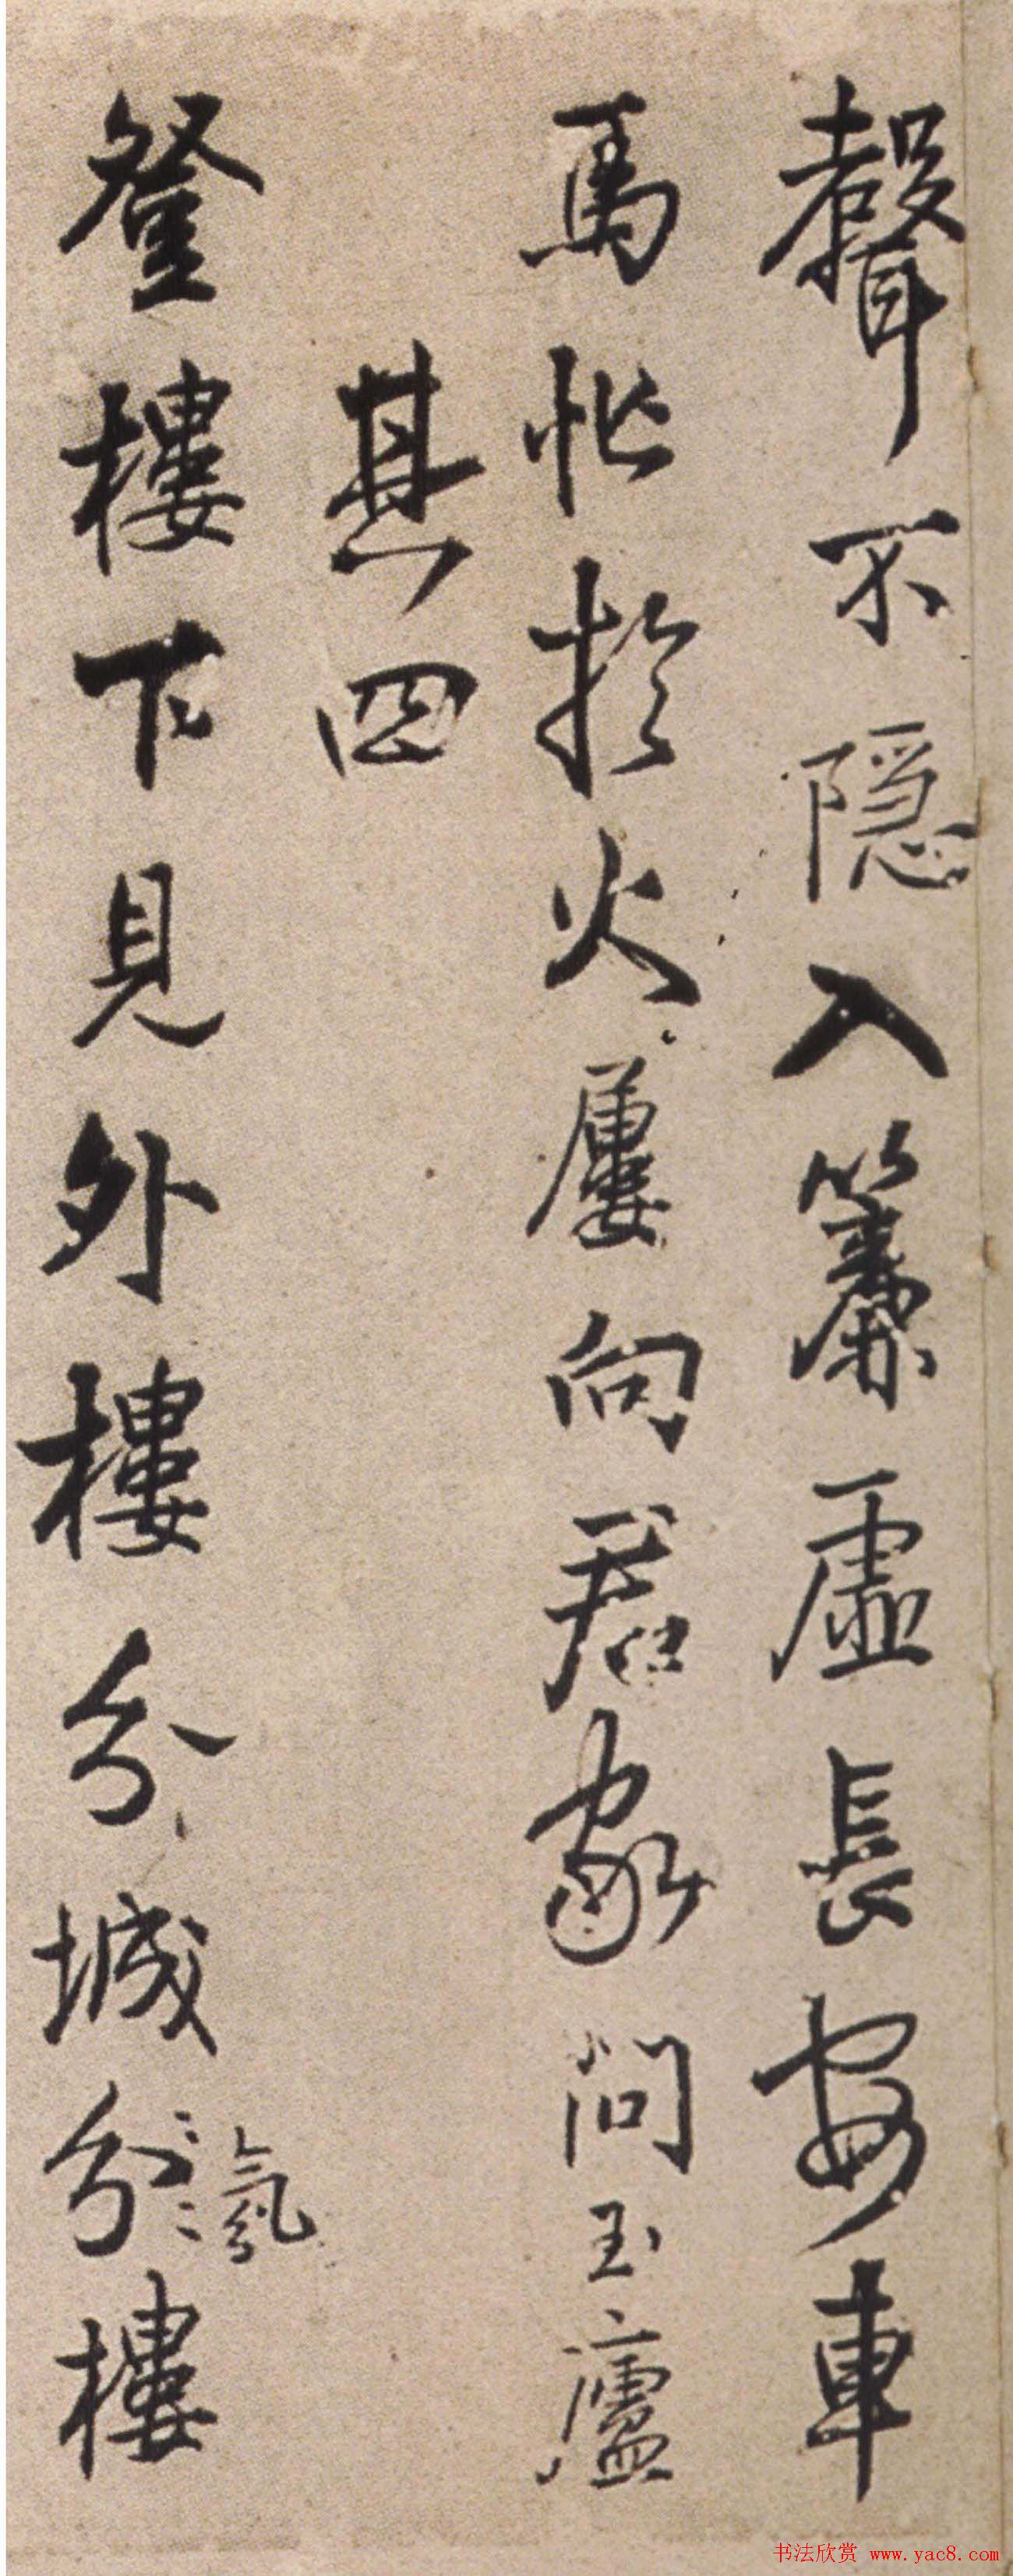 聲不隱入簾虛長安車
馬忙於火屢向君家問玉廬
其四
登樓下見外樓分城分樓
氣
书法欣赏 www.yac8.com